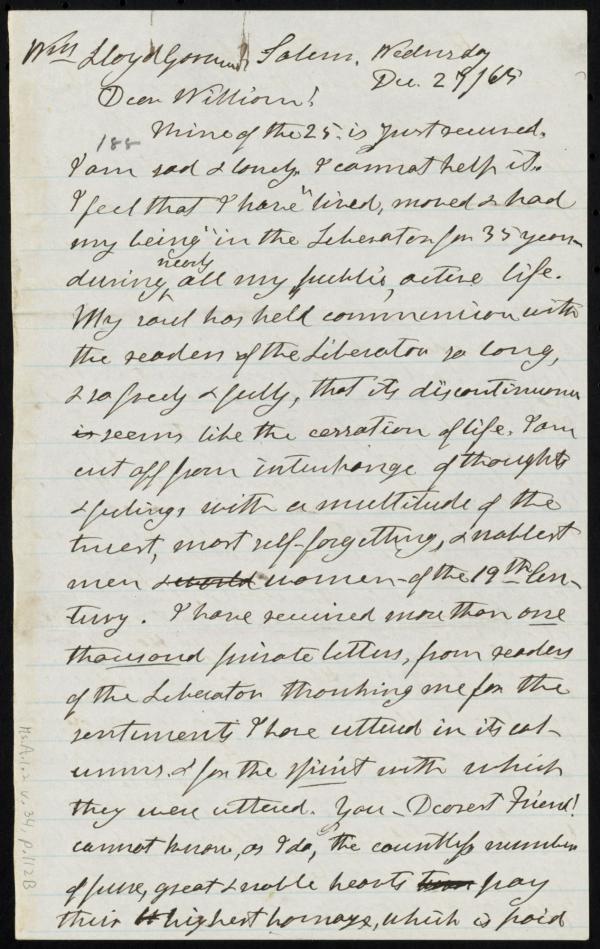 Wm Lloyd Garrison Salem, Wednesday
Dec. 27/65
Dear William!
188
Thine of the 25. is just received.
I am sad & lonely. I cannot help it.
I feel that I have "lived, moved & had
my being" in the Liberator for 35 years
during nearly all my public, active life.
My soul has held communion with
the readers of the Liberator so long,
& so freely & fully, that its discontinuance
is seems like the cessation of life. I am
cut off from interchange of thoughts
& feelings with a multitude of the
truest, most self-forgetting, & noblest
men & world women of the 19th Cen-
tury. I have received more than one
thousand private letters, from readers
of the Liberator thanking me for the
sentiments I have uttered in its col-
umns & for the spirit with which
they were uttered. You - Dearest Friend!
cannot know, as I do, the countless number
of pure, great & noble hearts pay
their highest homage, which is paid
Ms.A.1.2 v.34, p.112B